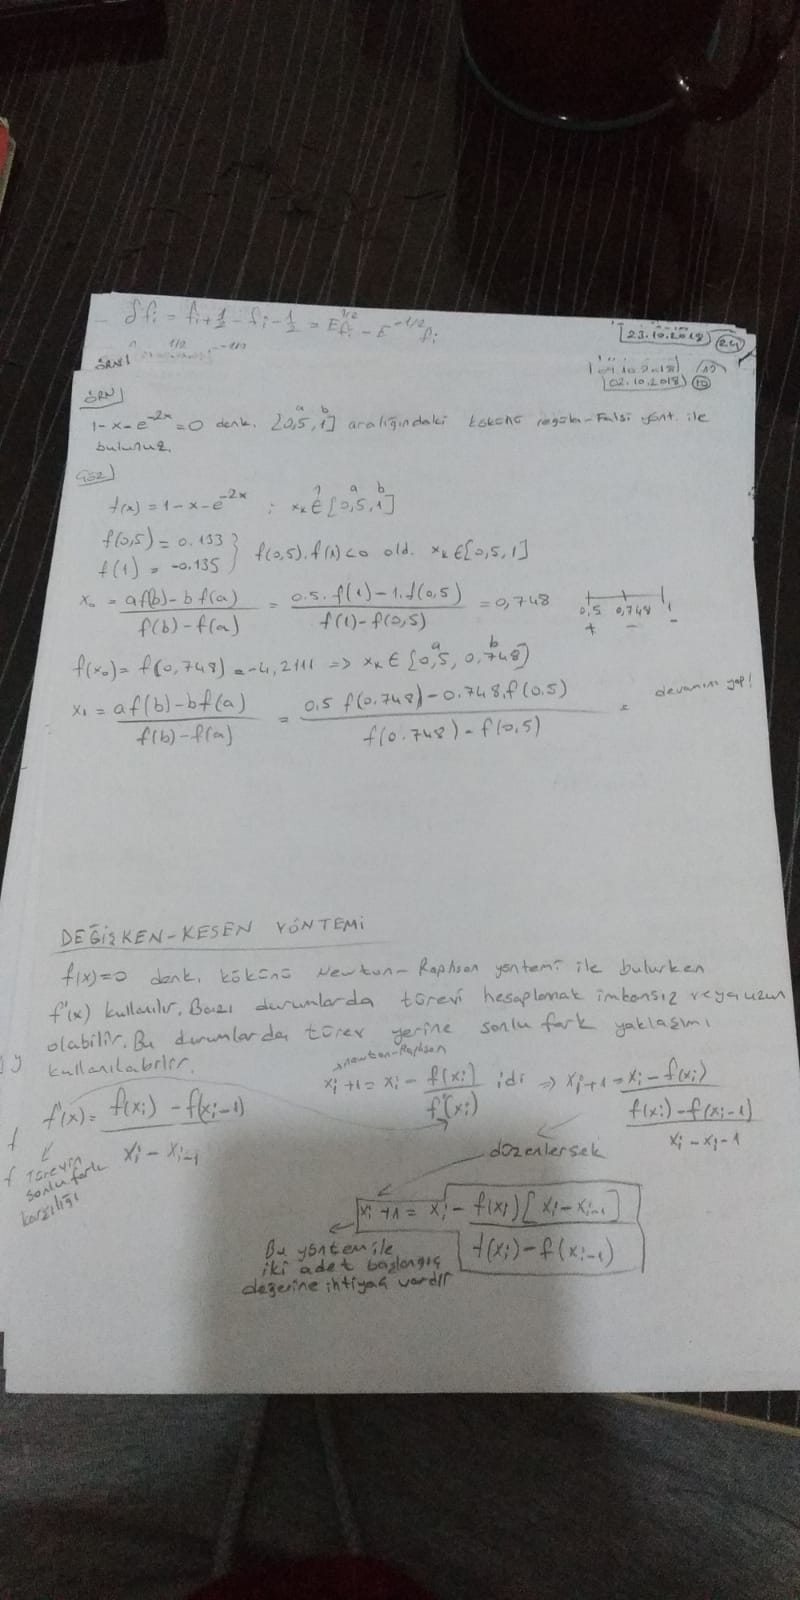 δfi = fi+1/2 - fi-1/2 = E^1/2 fi - E^-1/2 fi
23.10.2018 24
ÖRN
02.10.2018 10
ÖRN
1-x-e^-2x=0 denk. [0,5,1] aralığındaki kökünü regula-Falsi yönt. ile
bulunuz.
ÇÖZ
f(x)=1-x-e^-2x ; xk ∈ [0,5,1]
f(0,5)=0.133
f(1)=-0.135 } f(0,5).f(1)<0 old. xk∈[0,5,1]
x0 = af(b)-bf(a) / f(b)-f(a) = 0.5.f(1)-1.f(0,5) / f(1)-f(0,5) = 0,748
0,5 0,748 1
+ - -
f(x0)=f(0,748)=-4,2111 => xk∈[0,5, 0,748]
x1 = af(b)-bf(a) / f(b)-f(a) = 0.5 f(0.748)-0.748.f(0.5) / f(0.748)-f(0,5) = devamını yap!
DEĞİŞKEN-KESEN YÖNTEMİ
f(x)=0 denk. kökünü Newton-Raphson yöntemi ile bulurken
f'(x) kullanılır. Bazı durumlarda türevi hesaplamak imkansız veya uzun
olabilir. Bu durumlarda türev yerine sonlu fark yaklaşımı
kullanılabilir.
newton-Raphson
f'(x)= f(xi)-f(xi-1) / xi-xi-1
xi+1=xi- f(xi) / f'(xi) idi => xi+1=xi-f(xi) / f(xi)-f(xi-1) / xi-xi-1
Türevin
sonlu fark
karşılığı
düzenlersek
xi+1= xi- f(xi)[xi-xi-1] / f(xi)-f(xi-1)
Bu yöntem ile
iki adet başlangıç
değerine ihtiyaç vardır